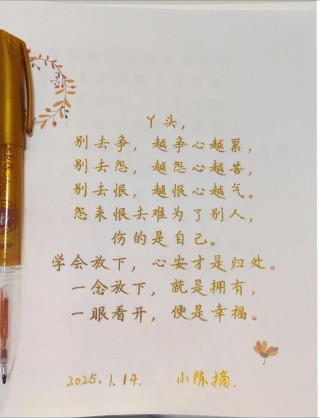 丫头，
别去争，越争心越累，
别去怨，越怨心越苦，
别去恨，越恨心越气。
怨来恨去难为了别人，
伤的是自己。
学会放下，心安才是归处。
一念放下，就是拥有，
一眼看开，便是幸福。
2025.1.14. 小陈摘.